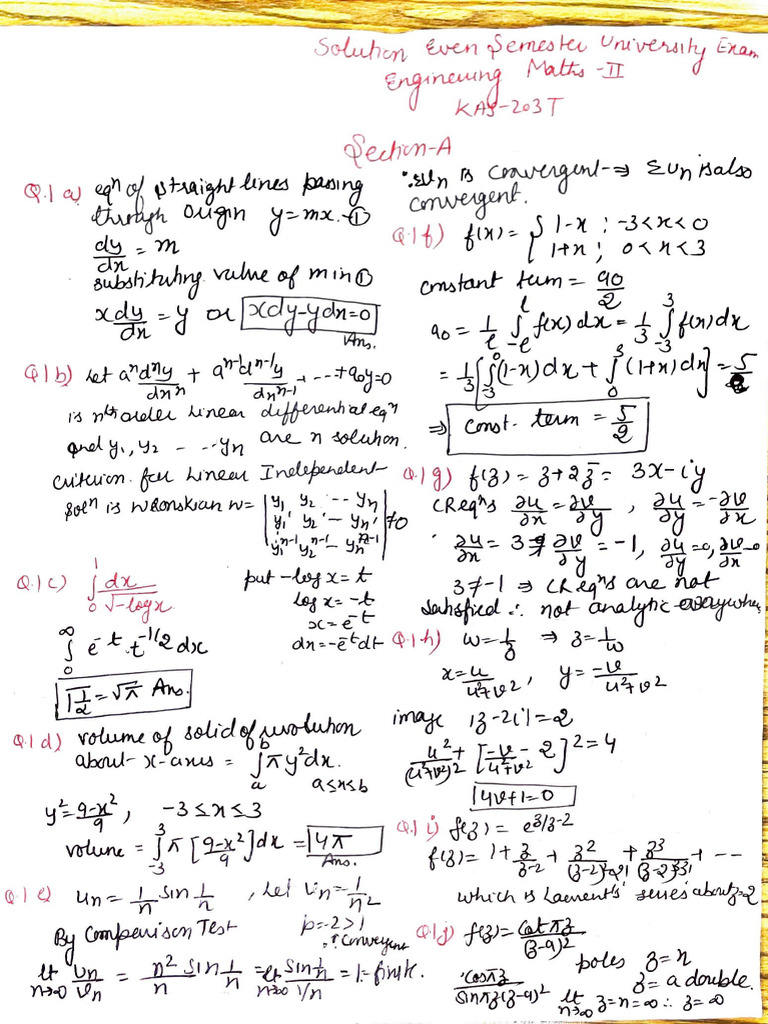 Solution Even Semester University Exam
Engineering Maths -II
KAS-203T
Section-A
Q.1 a) eqⁿ of straight lines passing
through origin y=mx.-①
dy/dx = m
substituting value of m in ①
x dy/dx = y or xdy-ydx=0
Ans.
Q1b) Let aⁿdⁿy/dxⁿ + aⁿ⁻¹dⁿ⁻¹y/dxⁿ⁻¹ + ---+a₀y=0
is nth order Linear differential eqⁿ
and y₁,y₂ - --yₙ are n solution.
criterion for Linear Independent
solⁿ is wronskian w= | y₁ y₂ -- yₙ
y₁' y₂' -- yₙ'
y₁ⁿ⁻¹ y₂ⁿ⁻¹ -- yₙⁿ⁻¹ | ≠0
Q.1 c) ∫₀¹ dx/√-logx.
put -log x = t
log x = -t
x = e⁻ᵗ
dx = -e⁻ᵗdt
∫₀^∞ e⁻ᵗ.t⁻¹/² dx
Γ1/2 = √π Ans.
Q.1 d) volume of solid of revolution
about x-axis = ∫ₐᵇ πy²dx.
a≤x≤b
y² = 9-x²/9, -3≤x≤3
volume = ∫₋₃³ π[9-x²/9]dx = 4π
Ans.
Q.1 e) uₙ = 1/n sin 1/n, Let vₙ = 1/n²
By Comparison Test p=-2>1
∴ Convergent
lt n→∞ uₙ/vₙ = n²/n sin 1/n = lt n→∞ sin 1/n / 1/n = 1 - finite.
∴ Σvₙ is convergent ⇒ Σuₙ is also
convergent.
Q.1 f) f(x) = { 1-x ; -3<x<0
1+x ; 0<x<3
constant term = a₀/2
a₀ = 1/l ∫₋ₗˡ f(x)dx = 1/3 ∫₋₃³ f(x)dx
= 1/3 [∫₋₃⁰ (1-x)dx + ∫₀³ (1+x)dx] = 5
⇒ const. term = 5/2
Q.1 g) f(z) = z+2z̄ = 3x-iy
CReqⁿs ∂u/∂x = ∂v/∂y, ∂u/∂y = -∂v/∂x
∂u/∂x = 3 ≠ ∂v/∂y = -1, ∂u/∂y=0, ∂v/∂x=0
3≠-1 ⇒ CReqⁿs are not
satisfied ∴ not analytic
Q.1 h) w = 1/z ⇒ z = 1/w
x = u/u²+v², y = -v/u²+v²
image |z-2i|=2
u²/(u²+v²)² + [-v/u²+v² - 2]² = 4
4v+1=0
Q.1 i) f(z) = e^z/z-2
f(z) = 1 + z/z-2 + z²/(z-2)²2! + z³/(z-2)³3! + --
which is Laurent's series about z=2
Q.1 j) f(z) = cot πz/(z-a)²
poles z = n
cosπz/sinπz(z-a)² z = a double.
lt n→∞ z=n=∞ ∴ z=∞